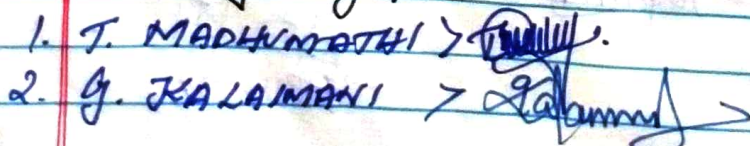 1. T. MADHUMATHI >
2. G. KALAIMANI >